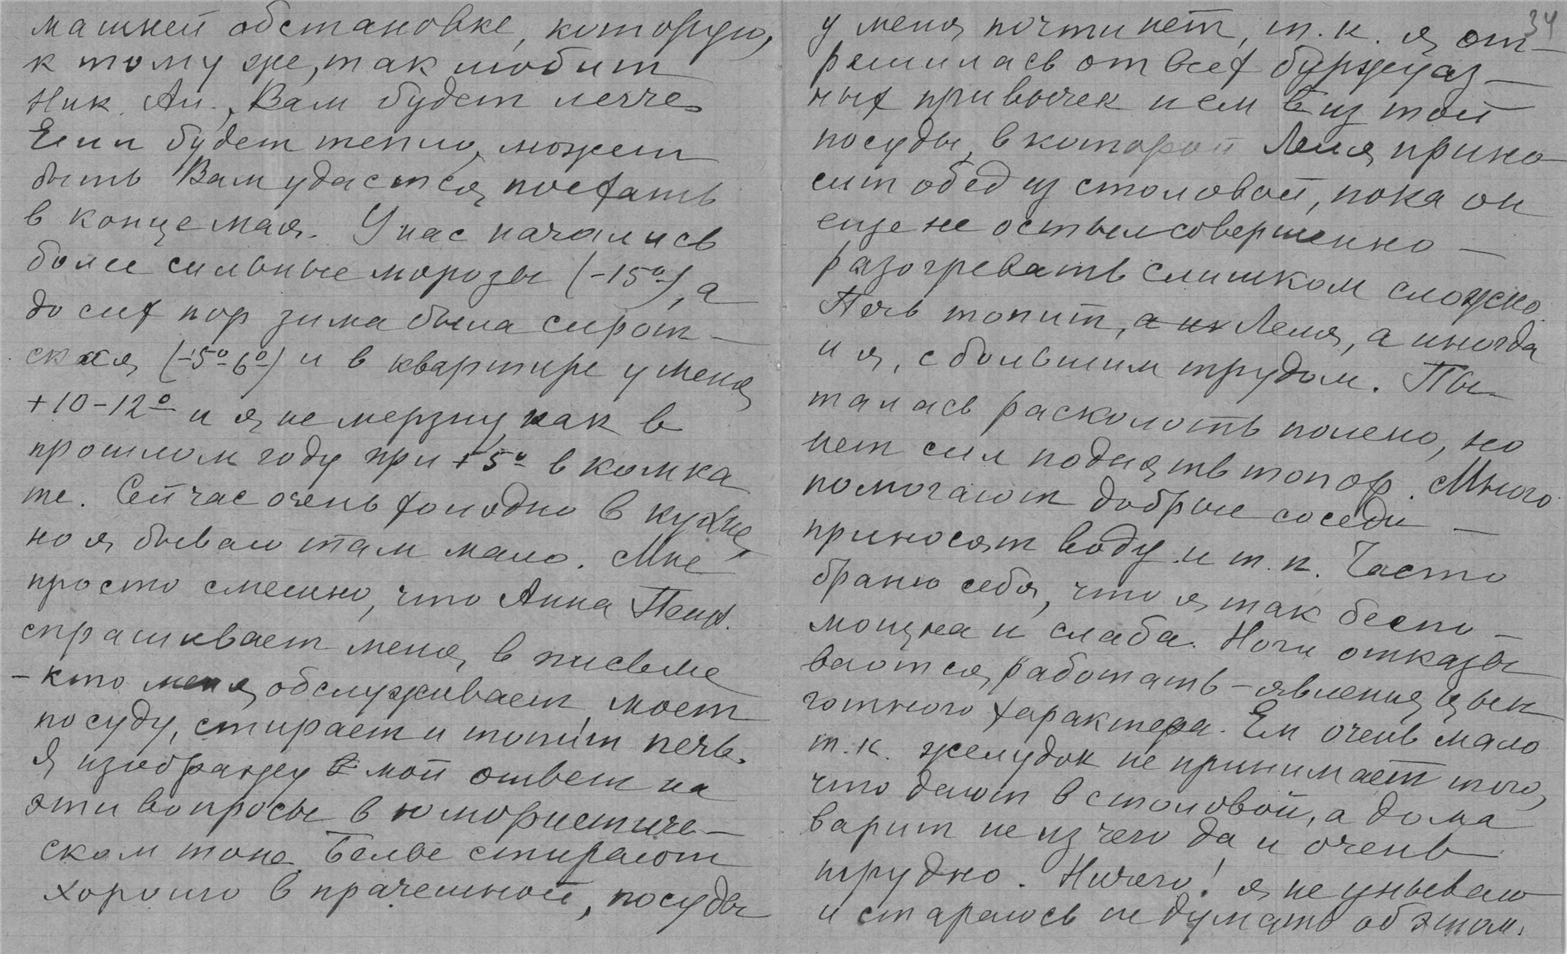 машней обстановке, которую,
к тому же, так любит
Ник. Ал., Вам будет легче
Если будет тепло, может
быть Вам удастся поехать
в конце мая. У нас начались
более сильные морозы (-15°), а
до сих пор зима была сирот-
ская (-5°-6°) и в квартире у меня
+10-12° и я не мерзну как в
прошлом году при +5° в комна
те. Сейчас очень холодно в кухне,
но я бываю там мало. Мне
просто смешно, что Анна
спрашивает меня, в письме
- кто меня обслуживает, моет
посуду, стирает и топит печь.
Я изображу мой ответ на
эти вопросы в юмористиче-
ском тоне. Белье стирают
хорошо в прачешной, посуды
34
у меня почти нет, т.к. я от-
решилась от всех буржуаз-
ных привычек и ем из той
посуды, в которой Леля прино
сит обед из столовой, пока он
еще не остыл совершенно -
разогревать слишком сложно.
Печь топит, Леля, а иногда
и я, с большим трудом. Пы-
талась расколоть полено, но
нет сил поднять топор. Много
помогают добрые соседи -
приносят воду и т.п. Часто
браню себя, что я так беспо-
мощна и слаба. Ноги отказы
ваются работать - явления цын
готного характера. Ем очень мало
т.к. желудок не принимает того,
что дают в столовой, а дома
варить не из чего да и очень
трудно. Ничего! я не унываю
и стараюсь не думать об этом.